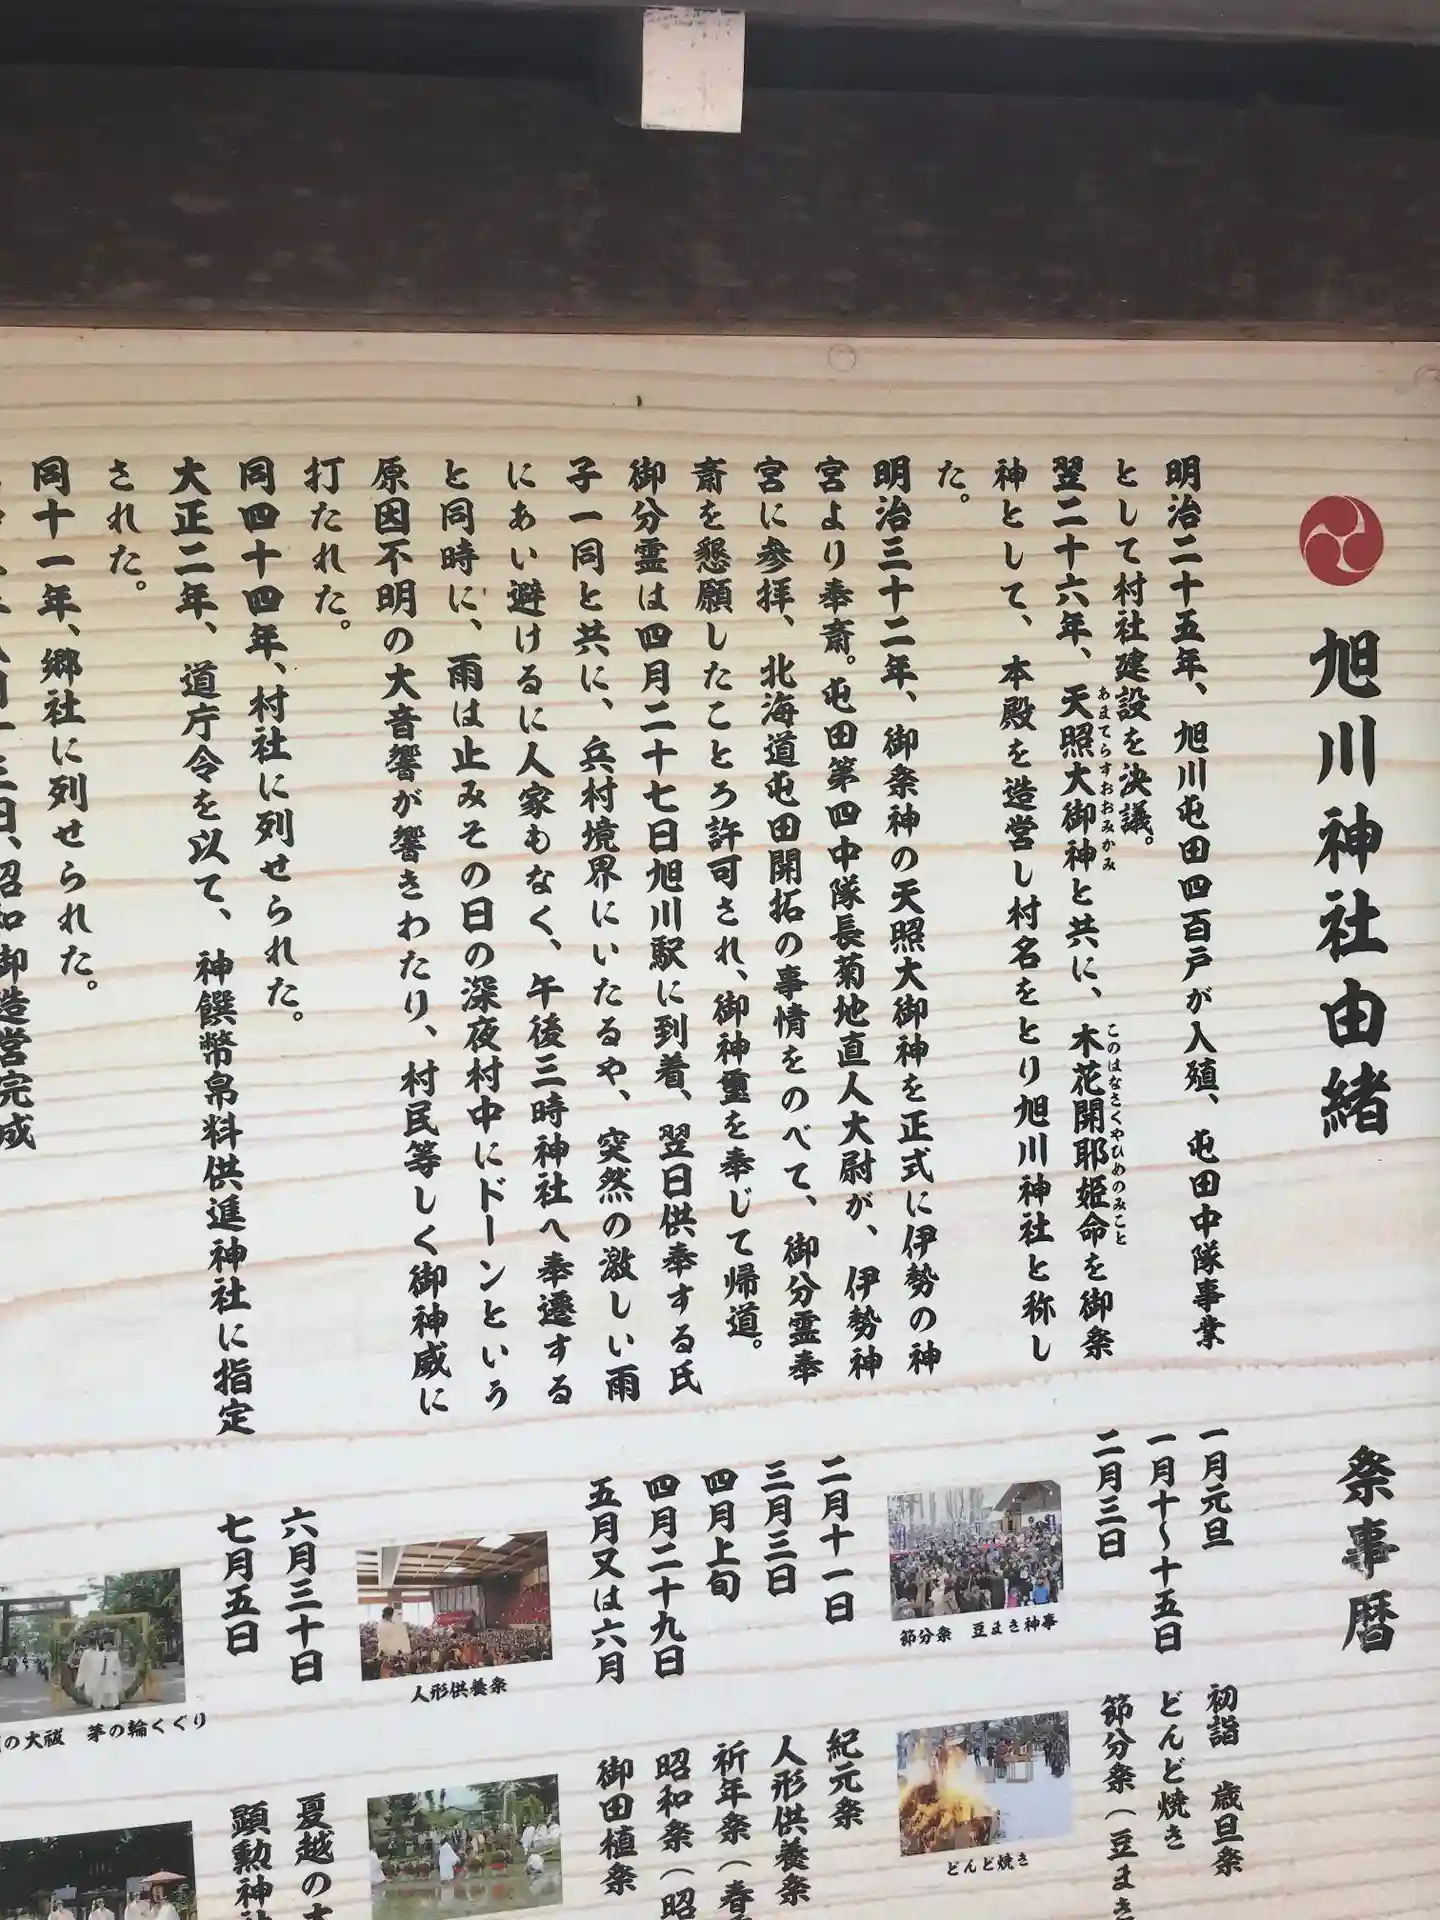 旭川神社由緒
明治二十五年、旭川屯田四百戸が入殖、屯田中隊事業
として村社建設を決議。
翌二十六年、天照大御神と共に、木花開耶姫命を御祭
あまてらすおおみかみ
このはなさくやひめのみこと
神として、本殿を造営し村名をとり旭川神社と称し
た。
明治三十二年、御祭神の天照大御神を正式に伊勢の神
宮より奉斎。屯田第四中隊長菊地直人大尉が、伊勢神
宮に参拝、北海道屯田開拓の事情をのべて、御分霊奉
斎を懇願したところ許可され、御神霊を奉じて帰道。
御分霊は四月二十七日旭川駅に到着、翌日供奉する氏
子一同と共に、兵村境界にいたるや、突然の激しい雨
にあい避けるに人家もなく、午後三時神社へ奉遷する
と同時に、雨は止みその日の深夜村中にドーンという
原因不明の大音響が響きわたり、村民等しく御神威に
打たれた。
同四十四年、村社に列せられた。
大正二年、道庁令を以て、神饌幣帛料供進神社に指定
された。
同十一年、郷社に列せられた。
日、昭和御造営完成
祭事暦
一月元旦 初詣 歳旦祭
一月十〜十五日 どんど焼き
二月三日 節分祭（豆まき
節分祭 豆まき神事
どんど焼き
二月十一日 紀元祭
三月三日 人形供養祭
四月上旬 祈年祭（春
四月二十九日 昭和祭（昭
五月又は六月 御田植祭
人形供養祭
六月三十日 夏越の大
七月五日 顕勲神社
の大祓 茅の輪くぐり